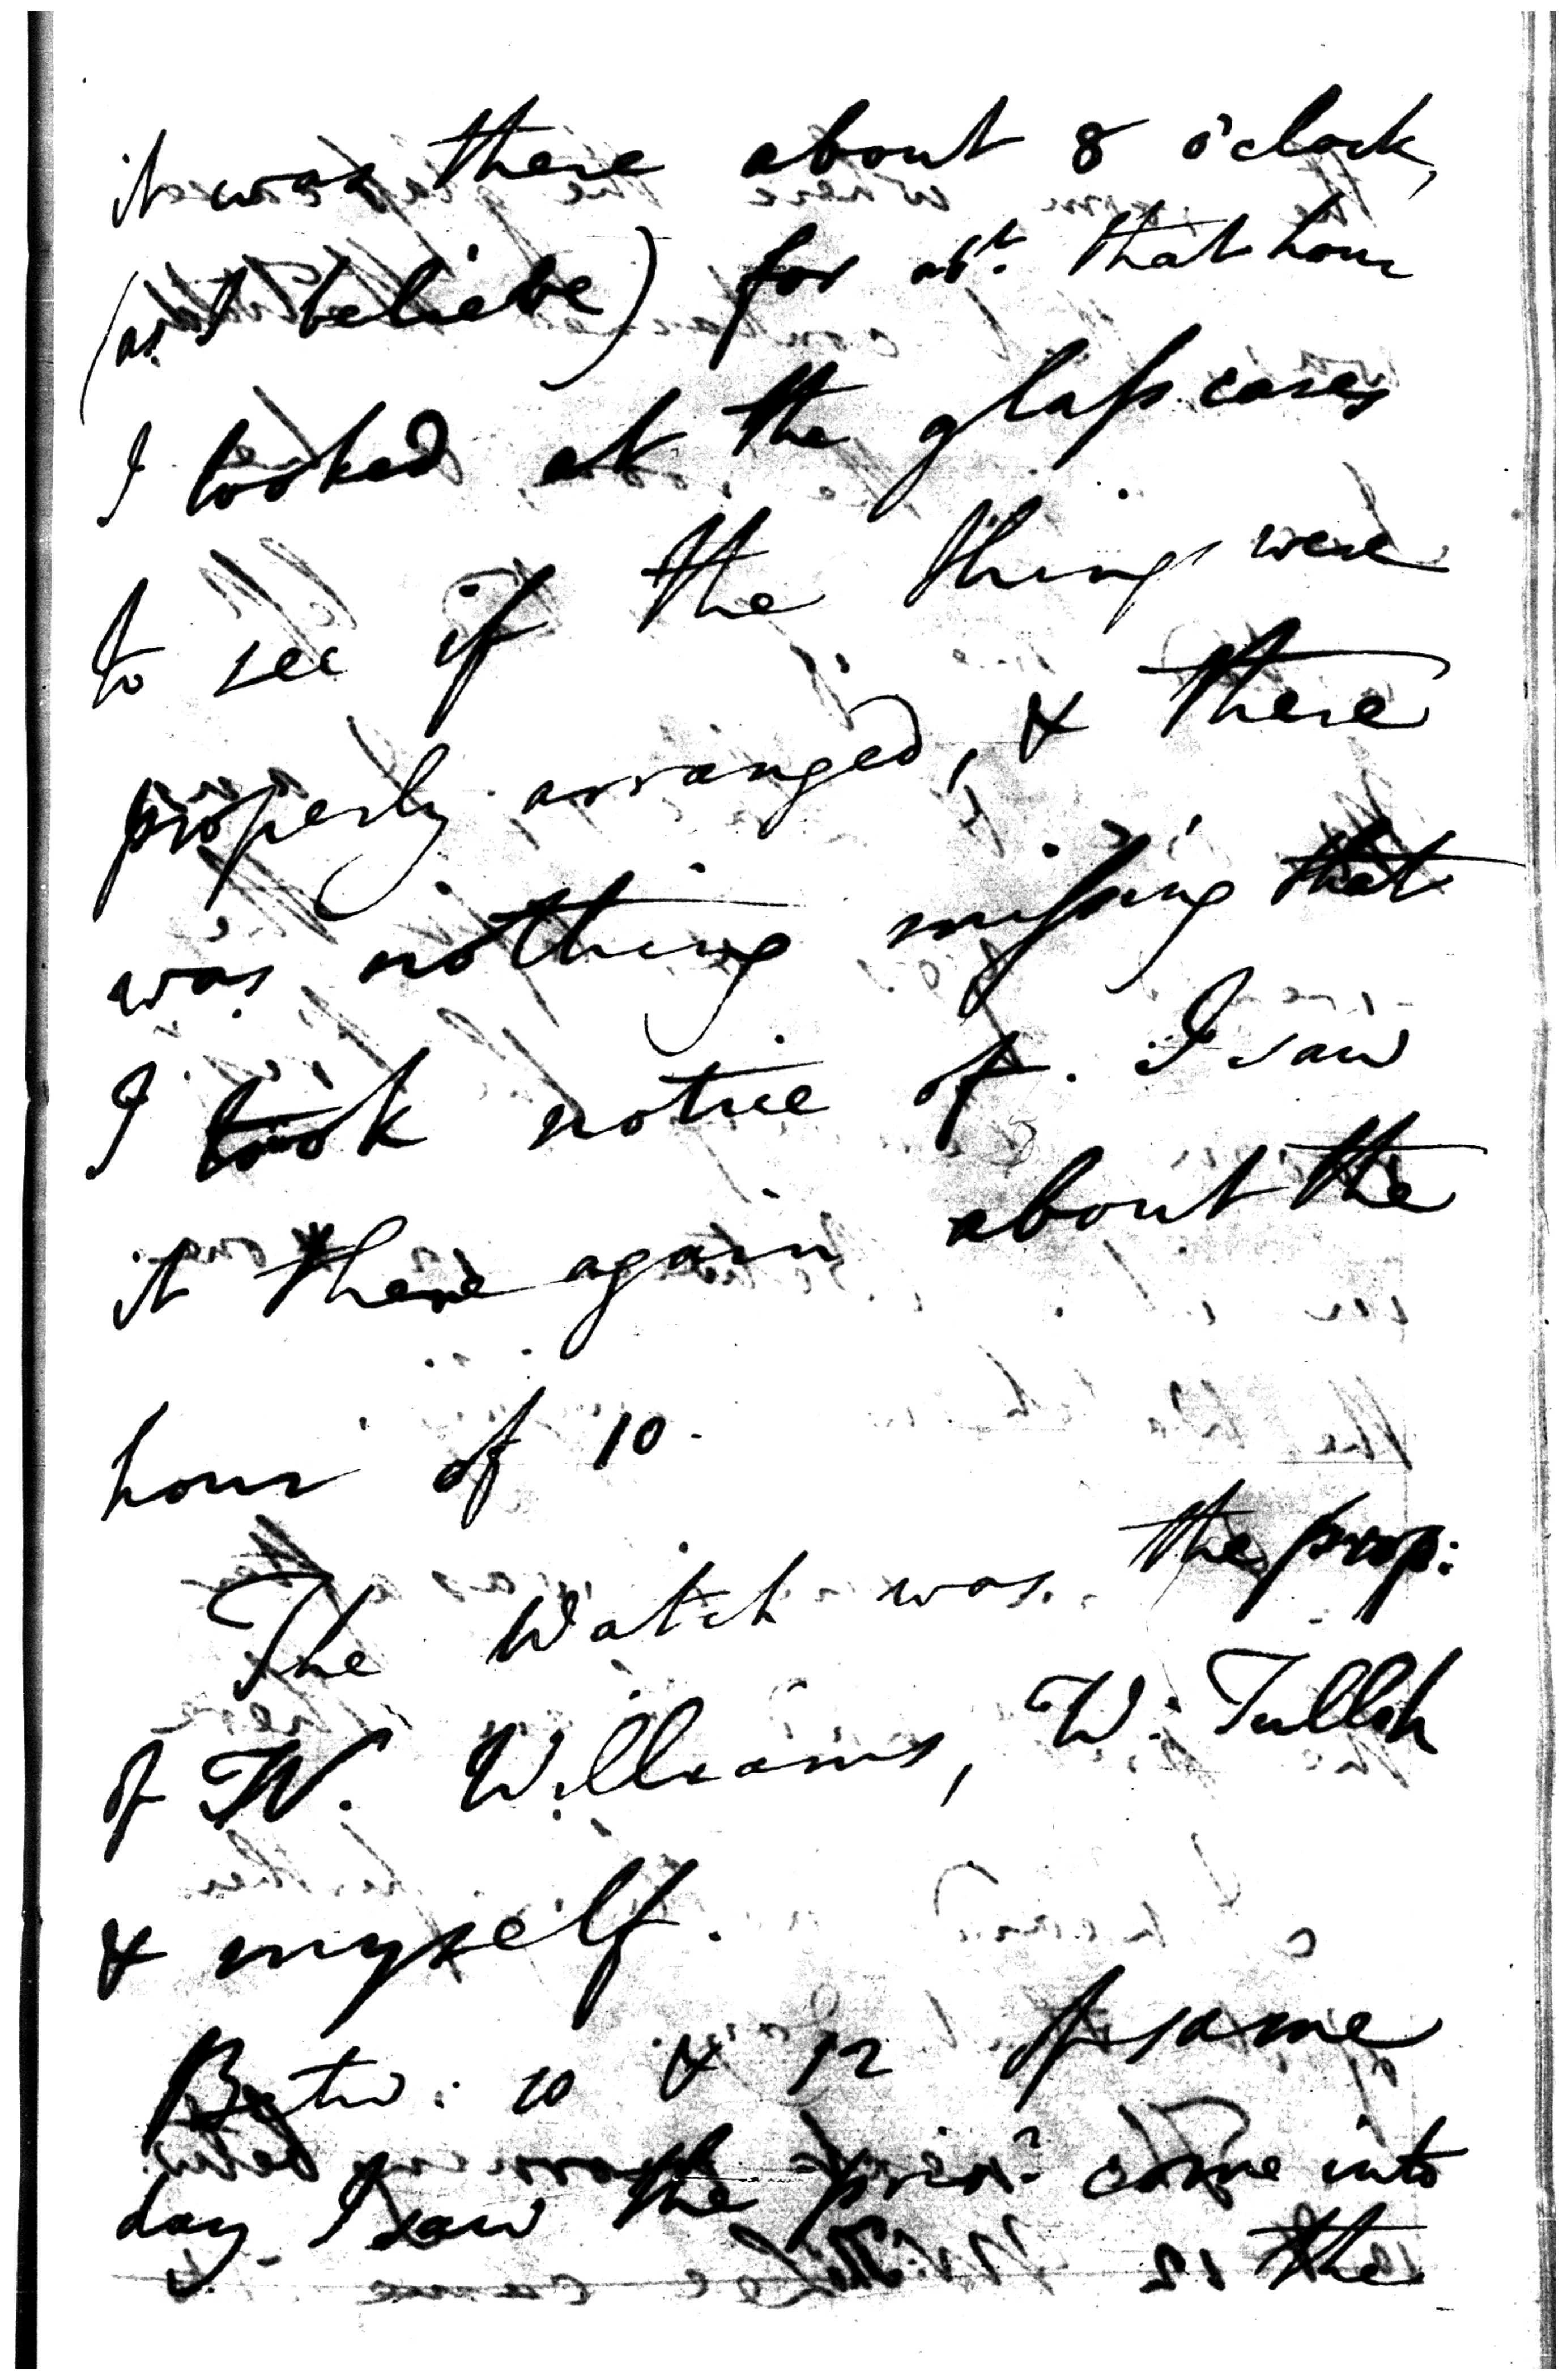 it was there about 8 o'clock,
(as I believe) for abt. that hour
I looked at the glass cases
to see if the things were
properly arranged, & there
was nothing missing that
I took notice of. I saw
it there again about the
hour of 10.
The Watch was the prop:
of W. Williams, W: Tulloh
& myself.
Betw: 10 & 12 of same
day I saw the prisr. come into
the